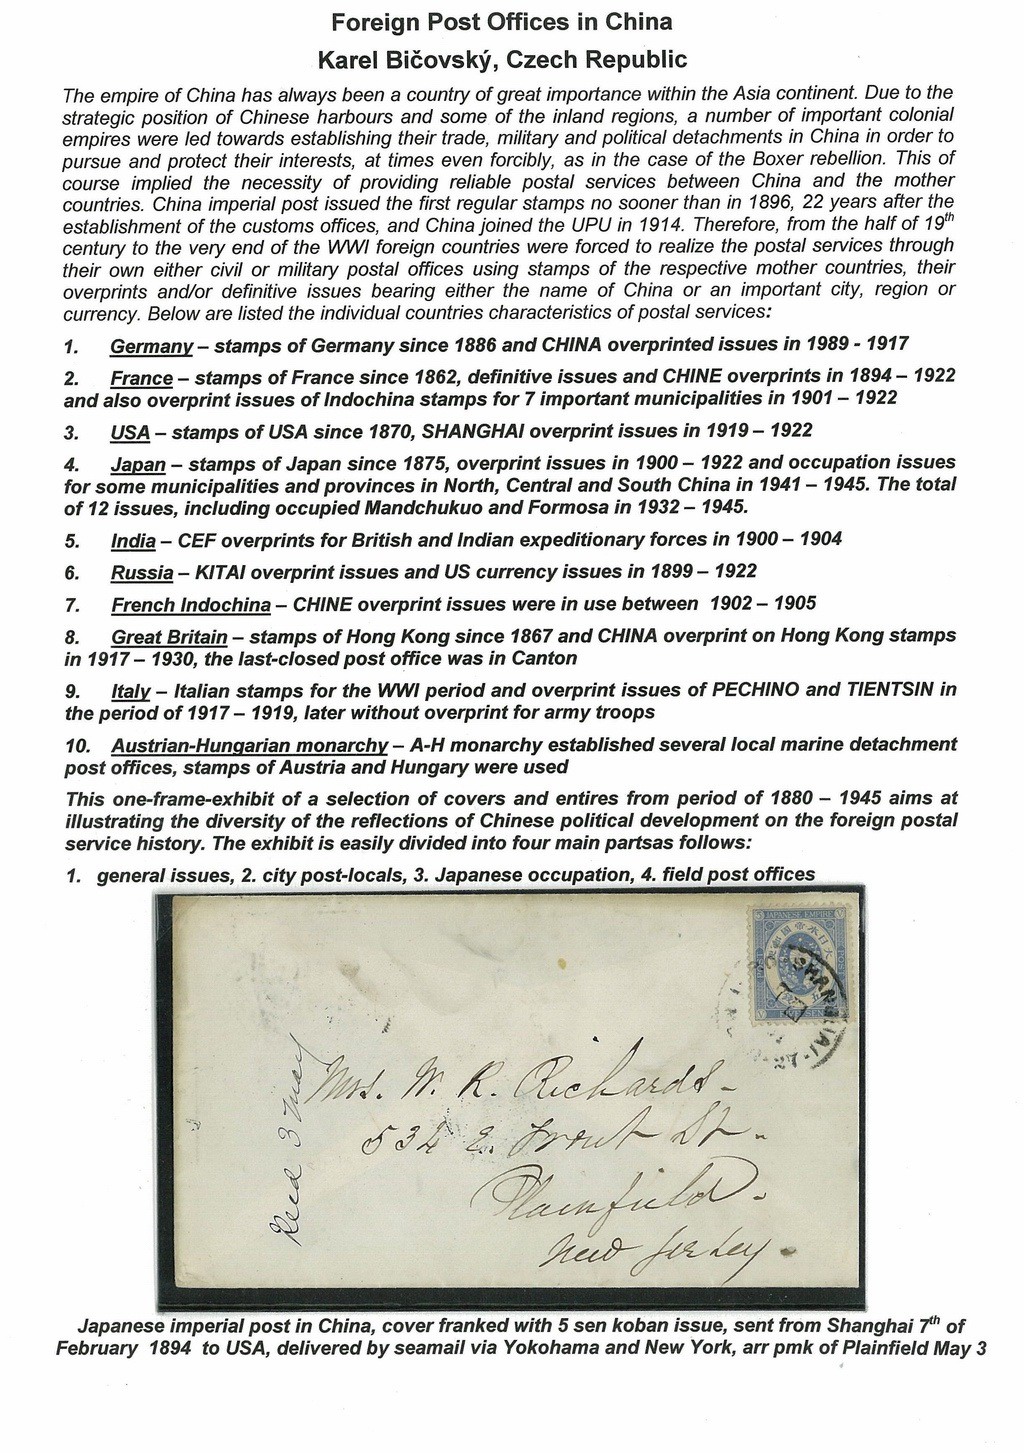 Foreign Post Offices in China
Karel Bičovský, Czech Republic
The empire of China has always been a country of great importance within the Asia continent. Due to the
strategic position of Chinese harbours and some of the inland regions, a number of important colonial
empires were led towards establishing their trade, military and political detachments in China in order to
pursue and protect their interests, at times even forcibly, as in the case of the Boxer rebellion. This of
course implied the necessity of providing reliable postal services between China and the mother
countries. China imperial post issued the first regular stamps no sooner than in 1896, 22 years after the
establishment of the customs offices, and China joined the UPU in 1914. Therefore, from the half of 19th
century to the very end of the WWI foreign countries were forced to realize the postal services through
their own either civil or military postal offices using stamps of the respective mother countries, their
overprints and/or definitive issues bearing either the name of China or an important city, region or
currency. Below are listed the individual countries characteristics of postal services:
1. Germany – stamps of Germany since 1886 and CHINA overprinted issues in 1989 - 1917
2. France – stamps of France since 1862, definitive issues and CHINE overprints in 1894 – 1922
and also overprint issues of Indochina stamps for 7 important municipalities in 1901 – 1922
3. USA – stamps of USA since 1870, SHANGHAI overprint issues in 1919 – 1922
4. Japan – stamps of Japan since 1875, overprint issues in 1900 – 1922 and occupation issues
for some municipalities and provinces in North, Central and South China in 1941 – 1945. The total
of 12 issues, including occupied Mandchukuo and Formosa in 1932 – 1945.
5. India – CEF overprints for British and Indian expeditionary forces in 1900 – 1904
6. Russia – KITAI overprint issues and US currency issues in 1899 – 1922
7. French Indochina – CHINE overprint issues were in use between 1902 – 1905
8. Great Britain – stamps of Hong Kong since 1867 and CHINA overprint on Hong Kong stamps
in 1917 – 1930, the last-closed post office was in Canton
9. Italy – Italian stamps for the WWI period and overprint issues of PECHINO and TIENTSIN in
the period of 1917 – 1919, later without overprint for army troops
10. Austrian-Hungarian monarchy – A-H monarchy established several local marine detachment
post offices, stamps of Austria and Hungary were used
This one-frame-exhibit of a selection of covers and entires from period of 1880 – 1945 aims at
illustrating the diversity of the reflections of Chinese political development on the foreign postal
service history. The exhibit is easily divided into four main partsas follows:
1. general issues, 2. city post-locals, 3. Japanese occupation, 4. field post offices
5 JAPANESE EMPIRE V
大日本帝國郵便
SHANGHAI
Mrs. W. R. Richards
534 E. Front St.
Plainfield
New Jersey
Recd 3 May
Japanese imperial post in China, cover franked with 5 sen koban issue, sent from Shanghai 7th of
February 1894 to USA, delivered by seamail via Yokohama and New York, arr pmk of Plainfield May 3